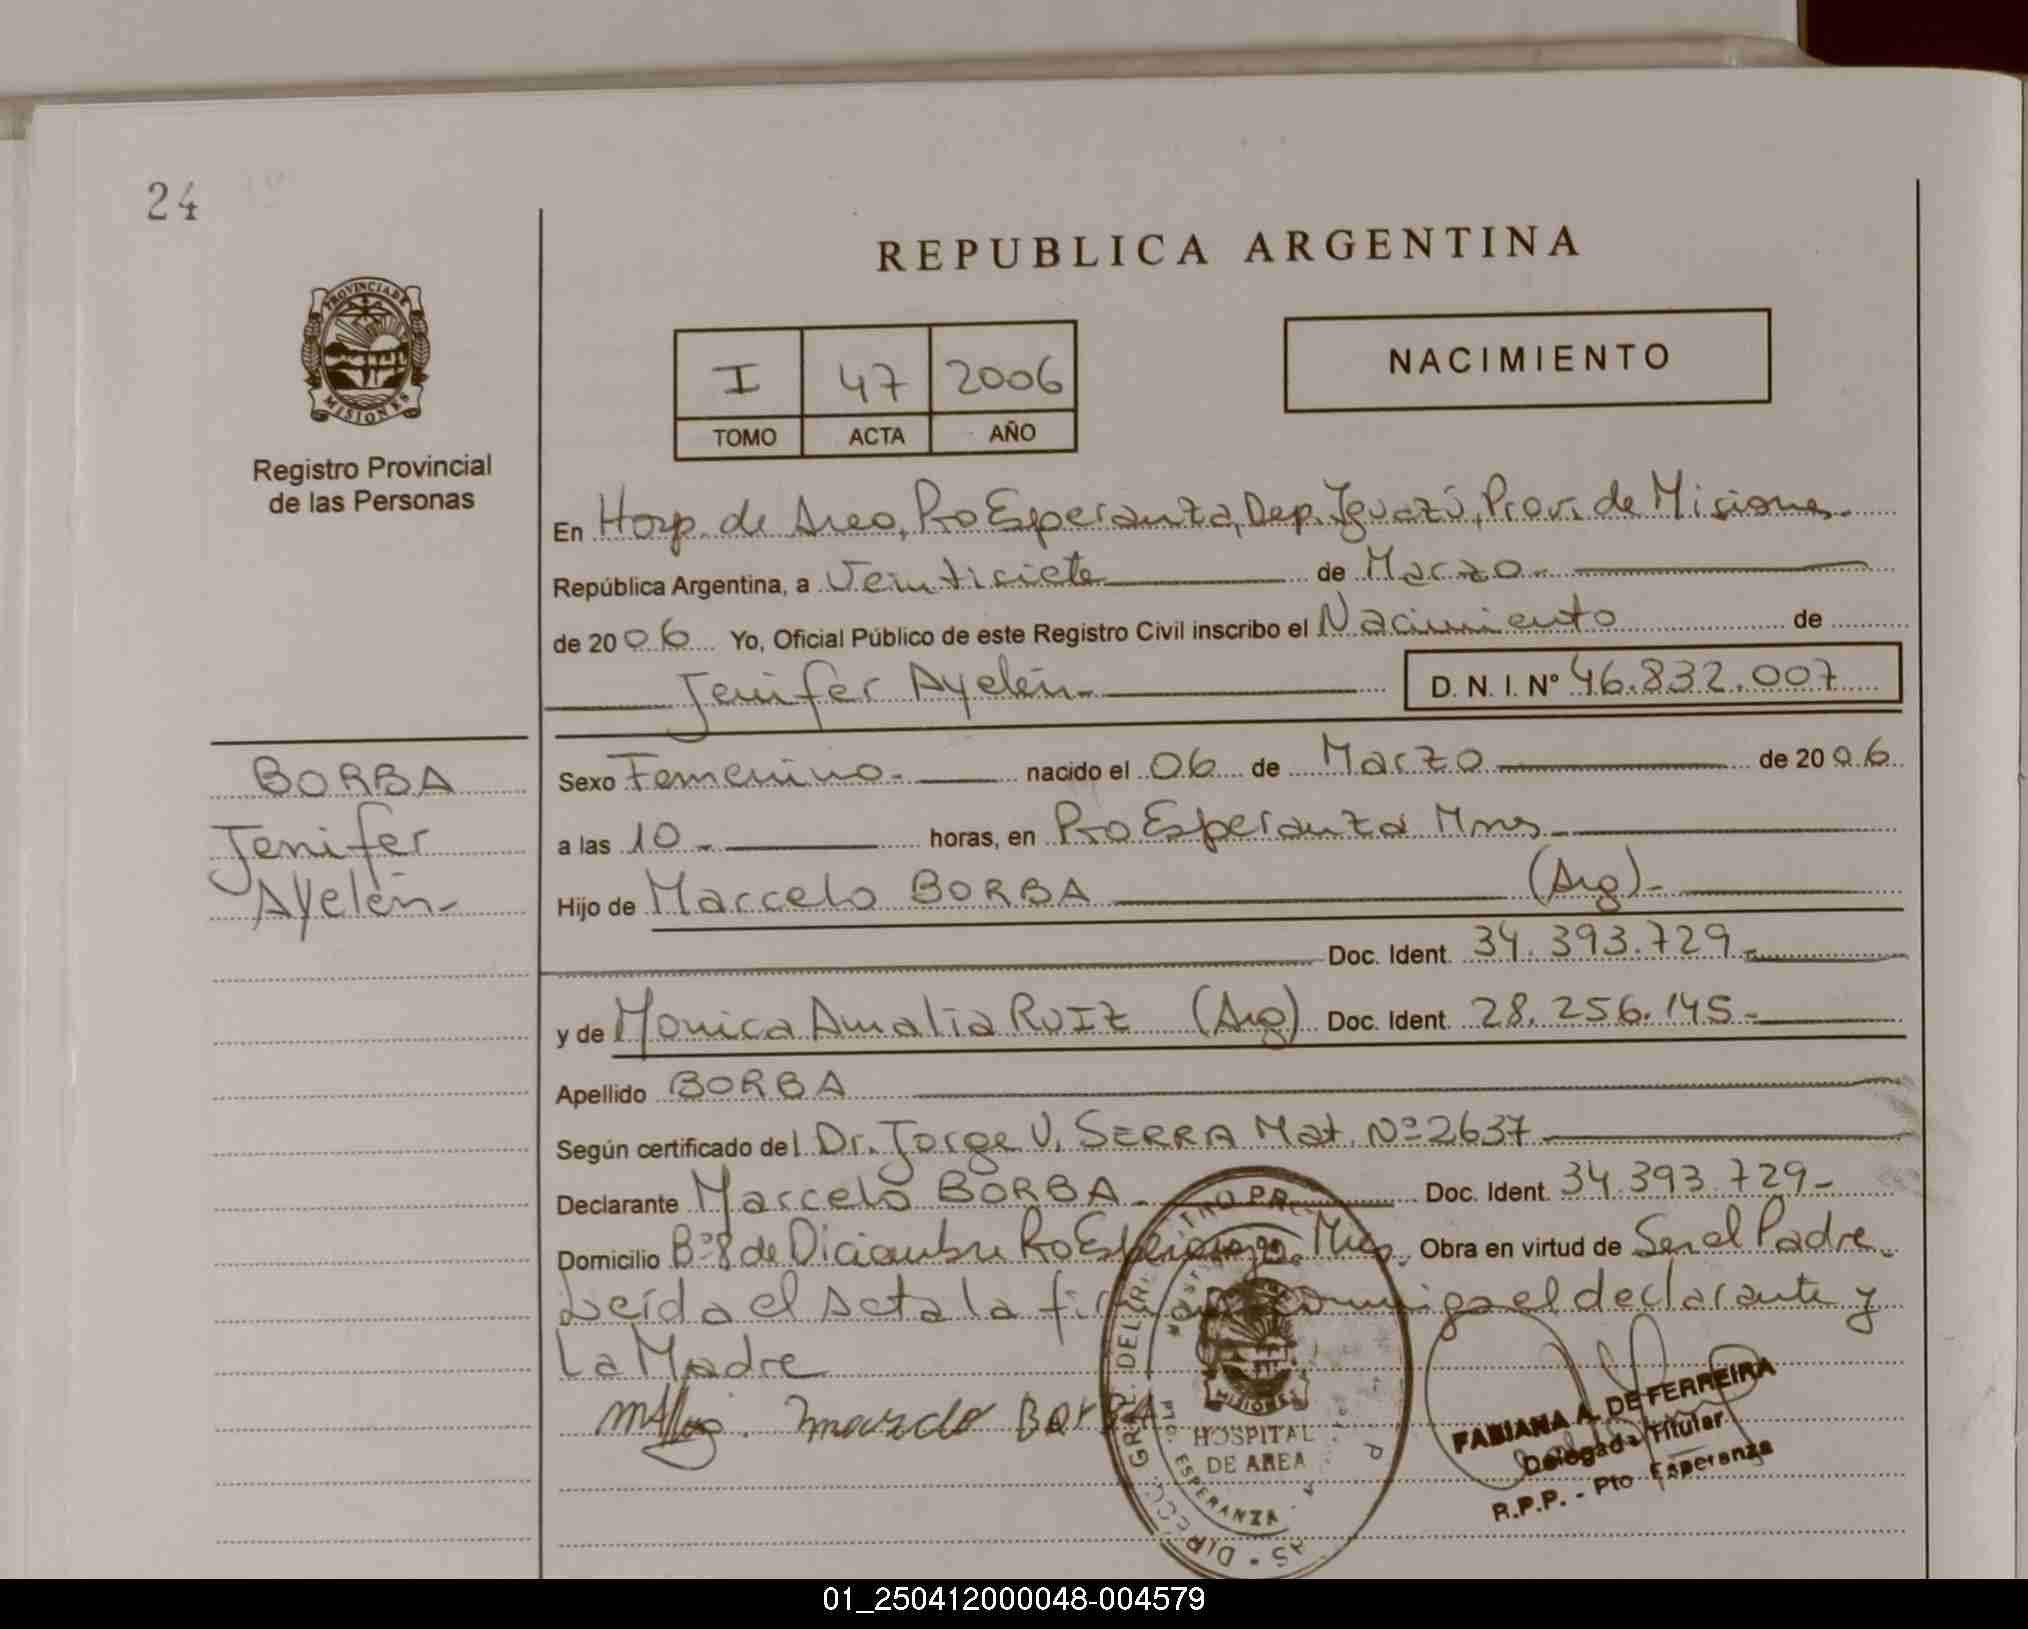 24
REPUBLICA ARGENTINA
PROVINCIA DE
MISIONES
Registro Provincial
de las Personas
I 47 2006
TOMO ACTA AÑO
NACIMIENTO
En Hosp. de Area, Pto Esperanza, Dep. Iguazú, Prov. de Misiones.
República Argentina, a Veintisiete de Marzo.
de 2006 Yo, Oficial Público de este Registro Civil inscribo el Nacimiento de
Jenifer Ayelén. D. N. I. N° 46.832.007
BORBA
Jenifer
Ayelén.
Sexo Femenino. nacido el 06 de Marzo de 2006
a las 10. horas, en Pto Esperanza Mnes.
Hijo de Marcelo BORBA (Arg).
Doc. Ident. 34.393.729.
y de Monica Amalia RUIZ (Arg) Doc. Ident. 28.256.145.
Apellido BORBA
Según certificado del Dr. Jorge V. SERRA Mat. Nº 2637
Declarante Marcelo BORBA. Doc. Ident. 34.393.729.
Domicilio Bº 8 de Diciembre Pto Esperanza. Mnes. Obra en virtud de Ser el Padre.
Leída el Acta la firman conmigo el declarante y
La Madre
Marcelo BorBA
HOSPITAL
DE AREA
ESPERANZA
FABIANA A. DE FERREIRA
Delegada Titular
R.P.P. - Pto Esperanza
01_250412000048-004579